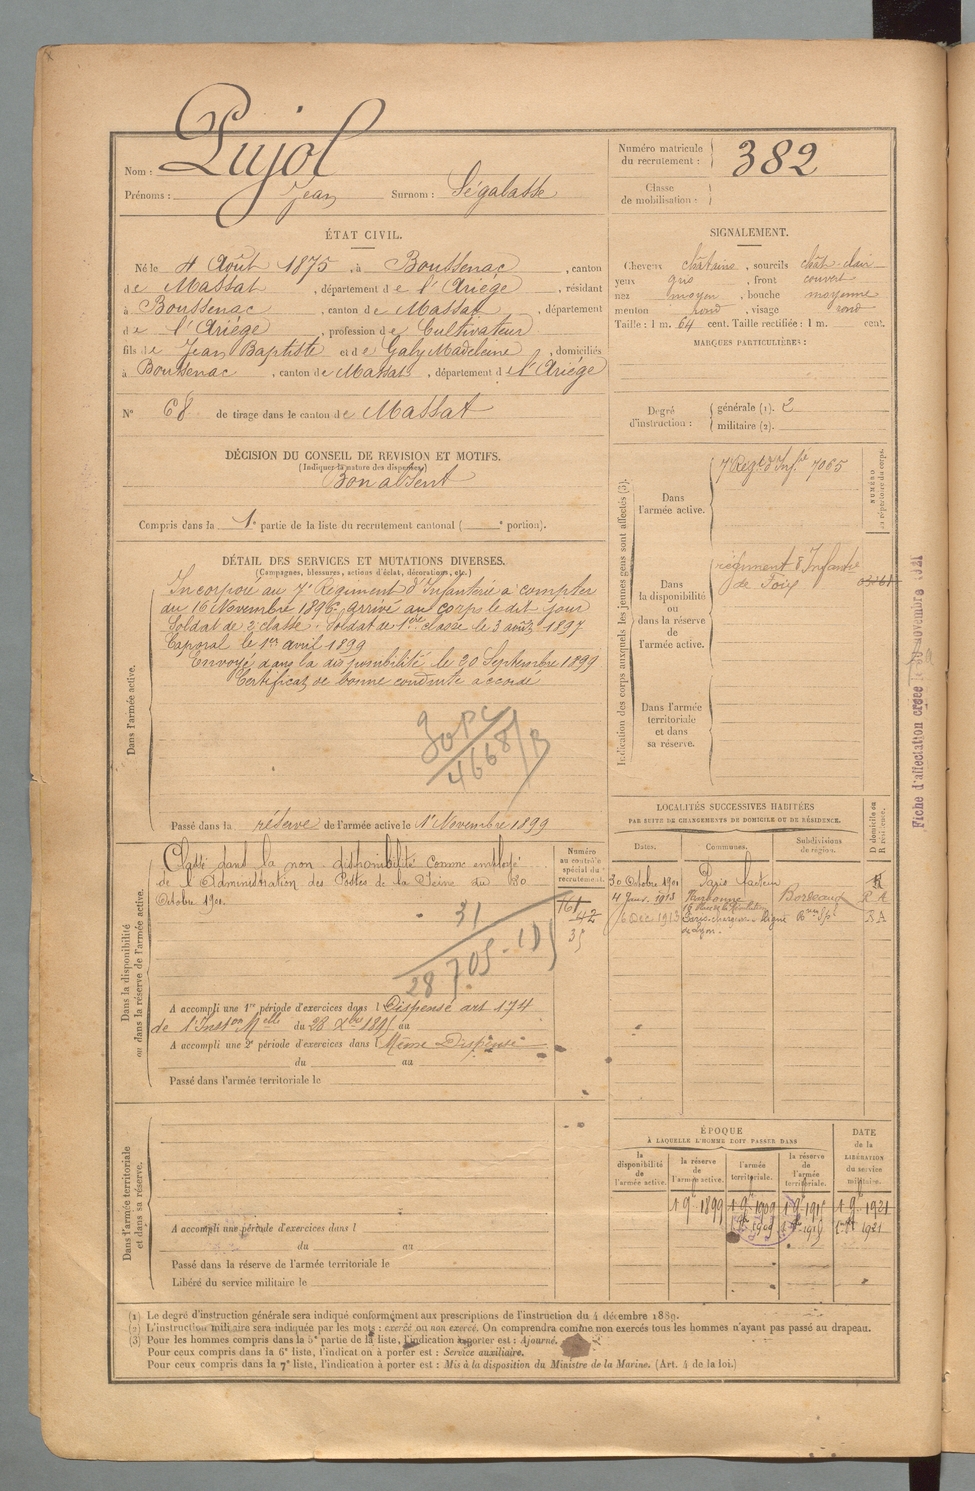 Nom : Pujol
Prénoms : Jean Surnom : Ségalasse
ÉTAT CIVIL.
Né le 4 Août 1875, à Boussenac, canton
de Massat, département de l'Ariège, résidant
à Boussenac, canton de Massat, département
de l'Ariège, profession de Cultivateur
fils de Jean Baptiste et de Galy Madeleine, domiciliés
à Boussenac, canton de Massat, département de l'Ariège
N° 68 de tirage dans le canton de Massat
DÉCISION DU CONSEIL DE REVISION ET MOTIFS.
(Indiquer la nature des dispenses)
Bon absent
Compris dans la 1e partie de la liste du recrutement cantonal ( e portion).
DÉTAIL DES SERVICES ET MUTATIONS DIVERSES.
(Campagnes, blessures, actions d'éclat, décorations, etc.)
Dans l'armée active.
Incorporé au 7e Régiment d'Infanterie à compter
du 16 Novembre 1896 arrivé au corps le dit jour
Soldat de 2e classe. Soldat de 1ère classe le 3 août 1897
Caporal le 1er avril 1899
Envoyé dans la disponibilité le 20 Septembre 1899
Certificat de bonne conduite accordé
4668/B
Passé dans la réserve de l'armée active le 1er Novembre 1899
Dans la disponibilité
ou dans la réserve de l'armée active.
Classé dans la non disponibilité comme employé
de l'Administration des Postes de la Seine du 30
Octobre 1901.
31
28705
A accompli une 1re période d'exercices dans l Dispensé art 174
de l'Inston Melle du 28 Xbre 1895 au
A accompli une 2e période d'exercices dans l Même Dispense
du au
Passé dans l'armée territoriale le
Numéro
au contrôle
spécial du
recrutement.
161
42
Dans l'armée territoriale
et dans sa réserve.
A accompli une période d'exercices dans l
du au
Passé dans la réserve de l'armée territoriale le
Libéré du service militaire le
Numéro matricule
du recrutement : 382
Classe
de mobilisation :
SIGNALEMENT.
Cheveux châtains, sourcils chât-clair
yeux gris, front couvert
nez moyen, bouche moyenne
menton rond, visage rond
Taille : 1 m. 64 cent. Taille rectifiée : 1 m. cent.
MARQUES PARTICULIÈRES :
Degré
d'instruction :
générale (1). 2
militaire (2).
Indication des corps auxquels les jeunes gens sont affectés (3).
Dans
l'armée active.
7e Régt d'Infie 7065
NUMÉRO
au répertoire du corps.
Dans
la disponibilité
ou
dans la réserve
de
l'armée active.
régiment d'Infanterie
de Foix
Dans l'armée
territoriale
et dans
sa réserve.
LOCALITÉS SUCCESSIVES HABITÉES
PAR SUITE DE CHANGEMENTS DE DOMICILE OU DE RÉSIDENCE.
Dates. Communes. Subdivisions
de région. D domicile ou
R résidence.
30 Octobre 1901 Paris facteur
4 Janv. 1913 Narbonne Bordeaux R A
6 Déc 1913 Paris, chargeur - ligne R A
de Lyon.
ÉPOQUE
À LAQUELLE L'HOMME DOIT PASSER DANS
DATE
de la
LIBÉRATION
du service
militaire.
la
disponibilité
de
l'armée active.
la réserve
de
l'armée active.
l'armée
territoriale.
la réserve
de
l'armée
territoriale.
1 9e 1899 1 9e 1909 1 9e 1915 1 9e 1921
Fiche d'affectation créée le 30 novembre 1921
(1) Le degré d'instruction générale sera indiqué conformément aux prescriptions de l'instruction du 4 décembre 1889.
(2) L'instruction militaire sera indiquée par les mots : exercé ou non exercé. On comprendra comme non exercés tous les hommes n'ayant pas passé au drapeau.
(3) Pour les hommes compris dans la 5e partie de la liste, l'indication à porter est : Ajourné.
Pour ceux compris dans la 6e liste, l'indication à porter est : Service auxiliaire.
Pour ceux compris dans la 7e liste, l'indication à porter est : Mis à la disposition du Ministre de la Marine. (Art. 4 de la loi.)